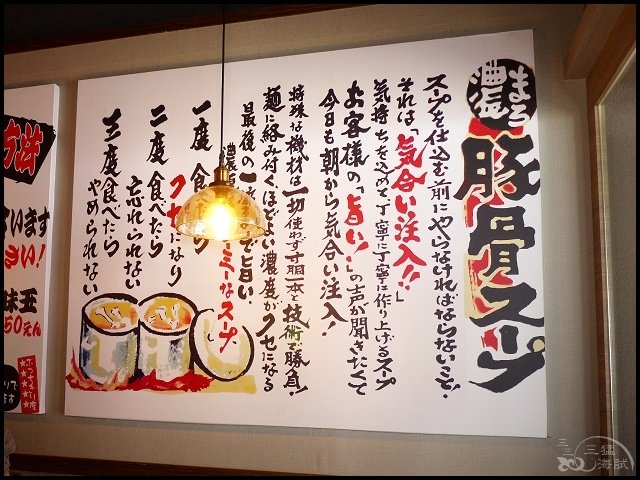 まろ
濃
豚骨スープ
スープを仕込む前にやらなければならないこと、
それは「気合い注入!!」
気持ちを込めて丁寧に丁寧に作り上げるスープ
お客様の「旨い!」の声が聞きたくて
今日も朝から気合い注入!
特殊な機材は一切使わず寸胴一本と技術で勝負!
麺に絡み付くほどよい濃度がクセになる
最後の一
で旨い、
濃
ミーなスープ
一度食べ
ら
クセになり
二度食べたら
忘れられない
三度食べたら
やめられない
います
まい!
味玉
50えん
三猛
海試